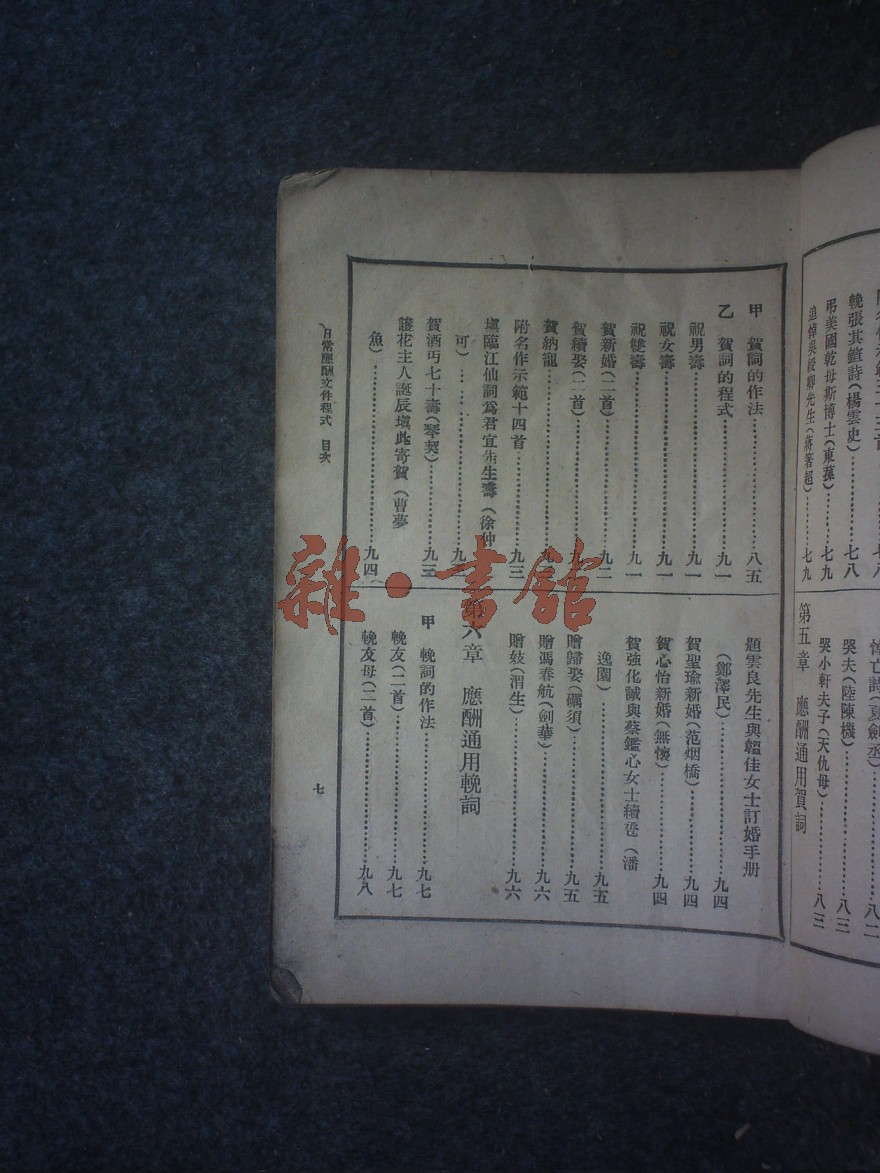 輓張其鍠詩(楊雲史)⋯⋯七八
弔美國乾母斯博士(東蓀)⋯⋯七九
追悼吳綬卿先生(蔣箸超)⋯⋯七九
悼亡詩(夏劍丞)⋯⋯八二
哭夫(陸陳機)⋯⋯八三
哭小軒夫子(天仇母)⋯⋯八三
第五章 應酬通用賀詞
甲 賀詞的作法⋯⋯八五
乙 賀詞的程式⋯⋯九一
祝男壽⋯⋯九一
祝女壽⋯⋯九一
祝雙壽⋯⋯九一
賀新婚(二首)⋯⋯九二
賀續娶(二首)⋯⋯
賀納寵⋯⋯
附名作示範十四首⋯⋯九三
塡臨江仙詞爲君宜先生壽(徐仲
可)⋯⋯九三
賀酒丐七十壽(琴契)⋯⋯九三
護花主人誕辰塡此寄賀(曹夢
魚)⋯⋯九四
題雲良先生與韞佳女士訂婚手册
(鄭澤民)⋯⋯九四
賀聖瑜新婚(范烟橋)⋯⋯九四
賀心怡新婚(無懷)⋯⋯九四
賀強化誠與蔡鑑心女士續巹(潘
逸園)⋯⋯九五
贈歸娶(礪須)⋯⋯九五
贈馮春航(劍華)⋯⋯九六
贈妓(渭生)⋯⋯九六
第六章 應酬通用輓詞
甲 輓詞的作法⋯⋯九七
輓友(二首)⋯⋯九七
輓友母(二首)⋯⋯九八
日常應酬文件程式 目次
七
雜·書館